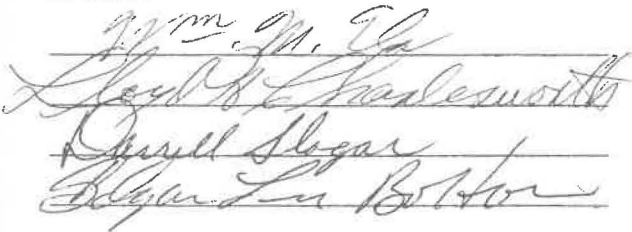 Wm. M.
Lloyd Charlesworth
Darrell Slogar
Edgar Lee Bolton